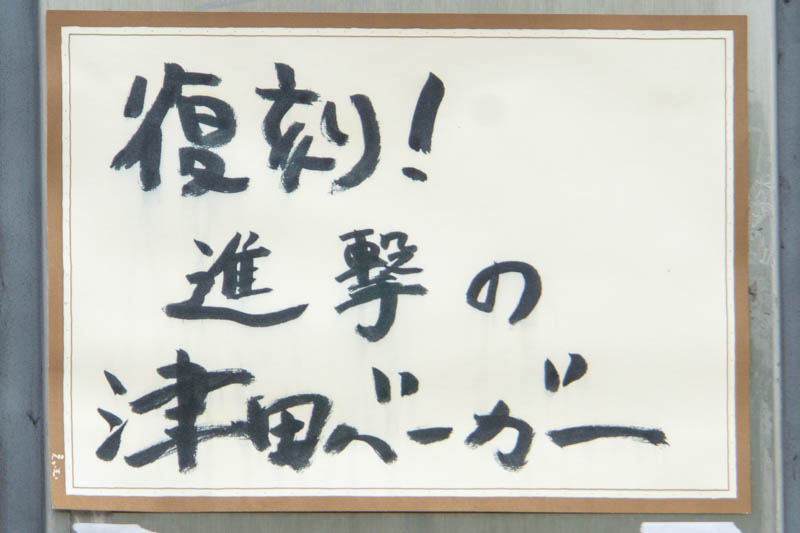 復刻!
進撃の
津田べーガー